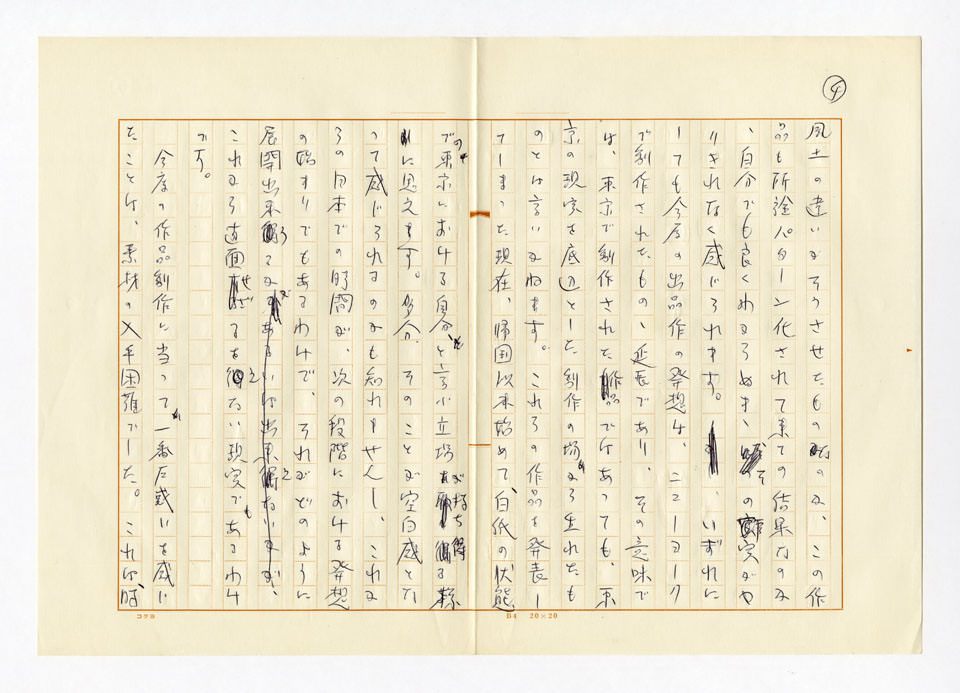 ④
風土の違いがそうさせたものなのか、この作
品も所詮パターン化されて来ての結果なのか
、自分でも良くわからぬまゝ、その実がや
りきれなく感じられます。いずれに
しても今度の出品作の発想は、ニューヨーク
で制作されたものゝ延長であり、その意味で
は、東京で制作された作品ではあっても、東
京の現実を底辺とした制作の場から生れたも
のとは言いかねます。これらの作品を発表し
てしまった現在、帰国以来始めて、白紙の状態
で東京における自分、と言う立場が持ち得る様
に思えます。多分、そのことが空白感とな
って感じられるのかも知れませんし、これか
らの日本での時間が、次の段階における発想
の始まりでもあるわけで、それがどのように
展開出来うるか
これから直面せざるを得ない現実でもあるわけ
です。
今度の作品制作に当って、一番戸惑いを感じ
たことは、素材の入手困難でした。これは、時
コクヨ
B4 20×20